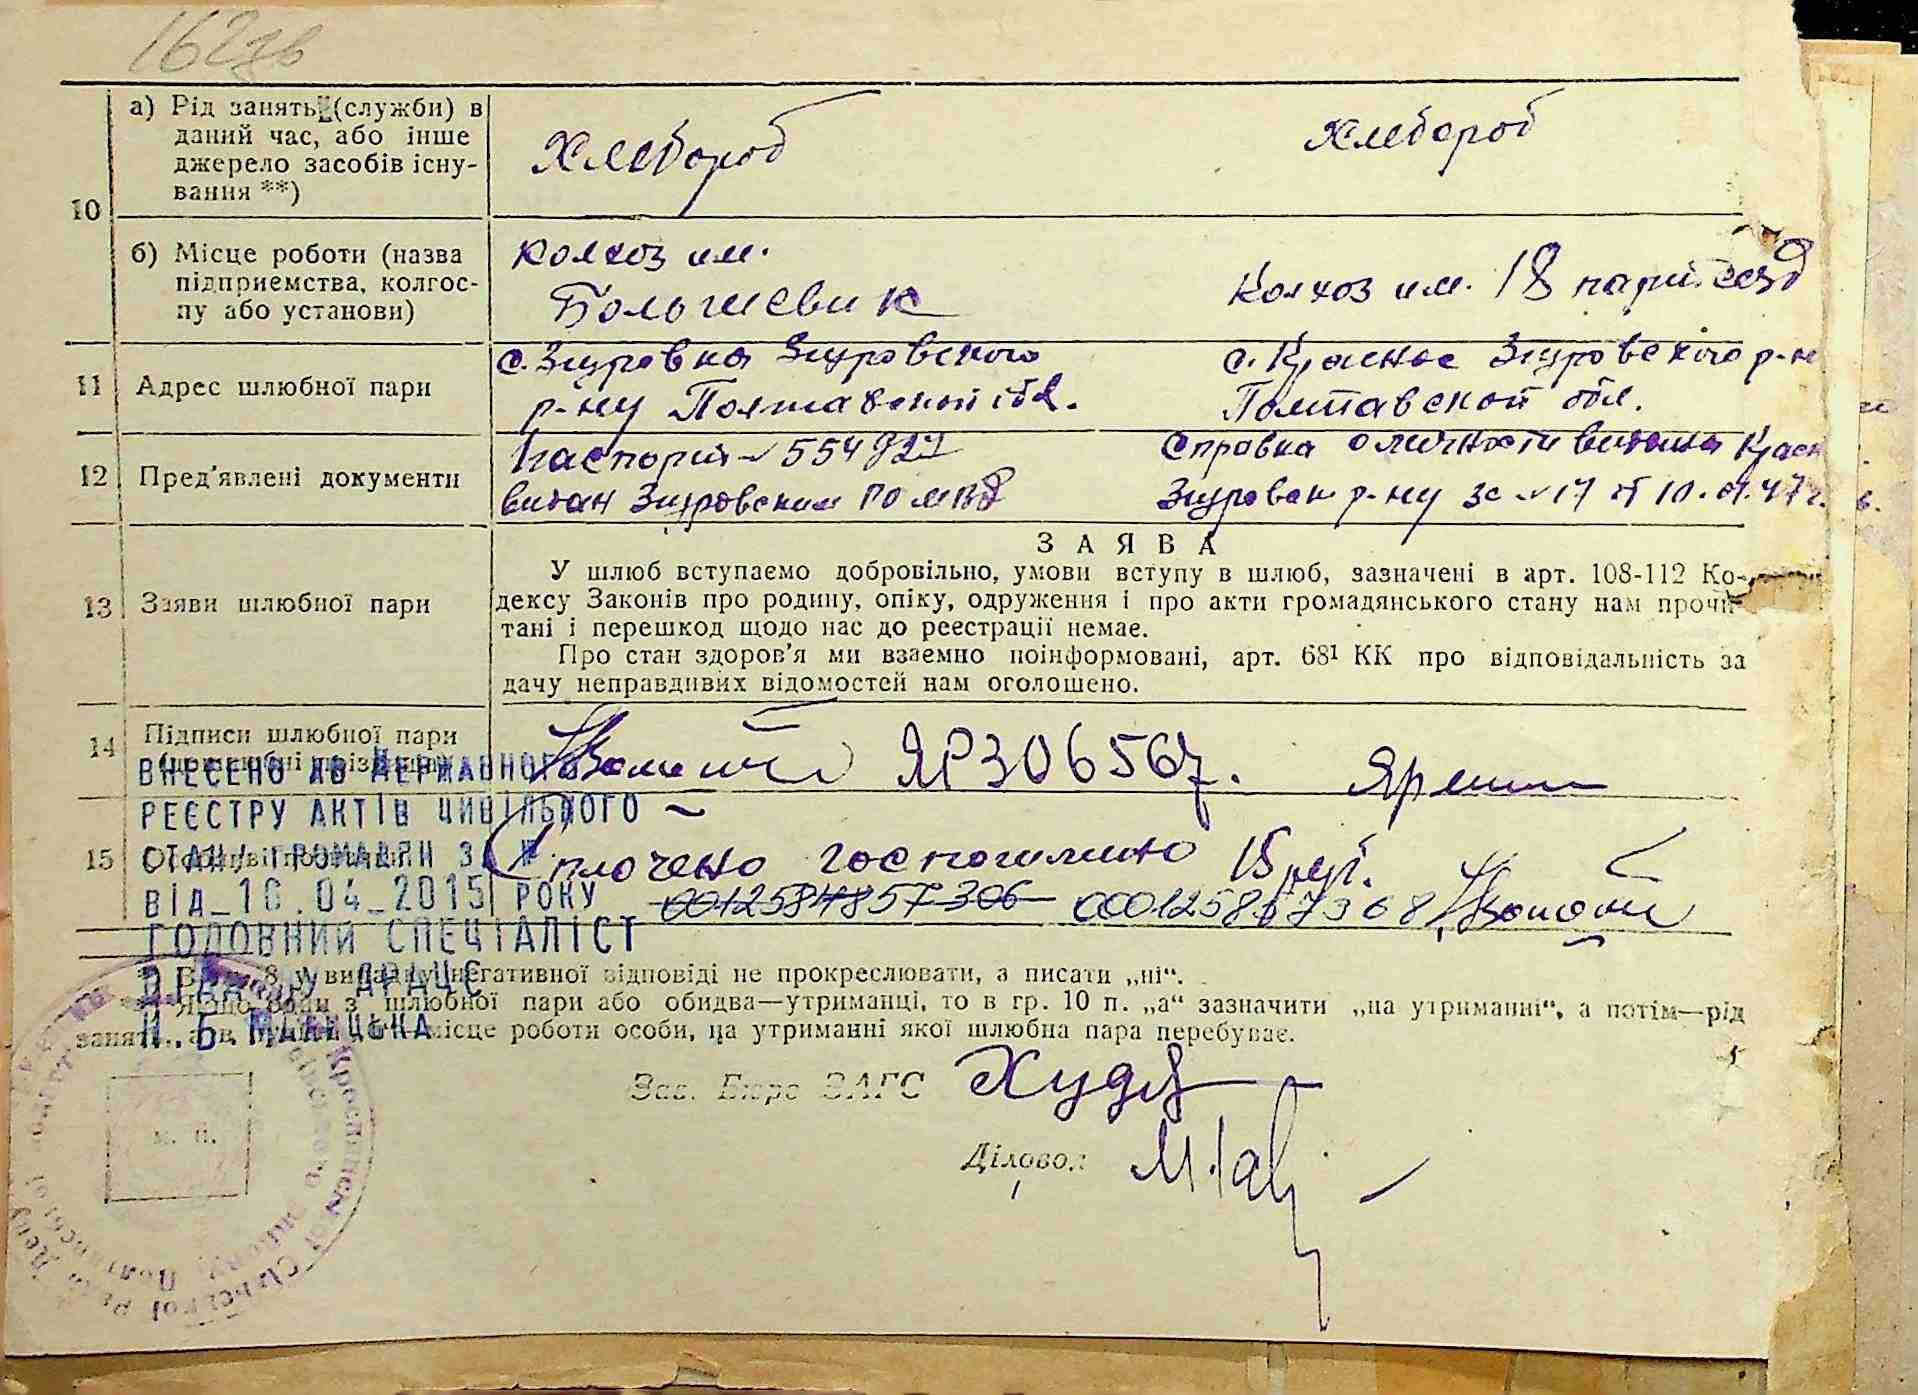 162зв
а) Рід занять (служби) в
даний час, або інше
джерело засобів існу-
вання **)
Хлебороб
Хлебороб
10
б) Місце роботи (назва
підприемства, колгос-
пу або установи)
Колхоз им.
Большевик
Колхоз им. 18 парт. сезд
11
Адрес шлюбної пари
с. Згуровка Згуровского
р-ну Полтавской обл.
с. Красное Згуровского р-н
Полтавской обл.
12
Пред'явлені документи
Паспорт № 554927
видан Згуровским РО МВД
Справка о личности видана Красн
Згуровск р-ну за № 17 от 10.01.47 г.
13
Заяви шлюбної пари
ЗАЯВА
У шлюб вступаємо добровільно, умови вступу в шлюб, зазначені в арт. 108-112 Ко-
дексу Законів про родину, опіку, одруження і про акти громадянського стану нам прочи-
тані і перешкод щодо нас до реєстрації немає.
Про стан здоров'я ми взаємно поінформовані, арт. 68¹ КК про відповідальність за
дачу неправдивих відомостей нам оголошено.
14
Підписи шлюбної пари
ЯР306567.
15
Сплочено госпошлину 15 руб.
0012584857306 000125867368
ВНЕСЕНО ДО ДЕРЖАВНОГО
РЕЄСТРУ АКТІВ ЦИВІЛЬНОГО
СТАНУ ГРОМАДЯН ЗА №
ВІД 10.04.2015 РОКУ
ГОЛОВНИЙ СПЕЦІАЛІСТ
ВІДДІЛУ ДРАЦС
* В гр. 8 у випадку негативної відповіді не прокреслювати, а писати „ні“.
** Якщо один з шлюбної пари або обидва—утриманці, то в гр. 10 п. „а“ зазначити „на утриманні“, а потім—рід
занять, а в місце роботи особи, на утриманні якої шлюбна пара перебуває.
Зав. Бюро ЗАГС
м. п.
Діловод